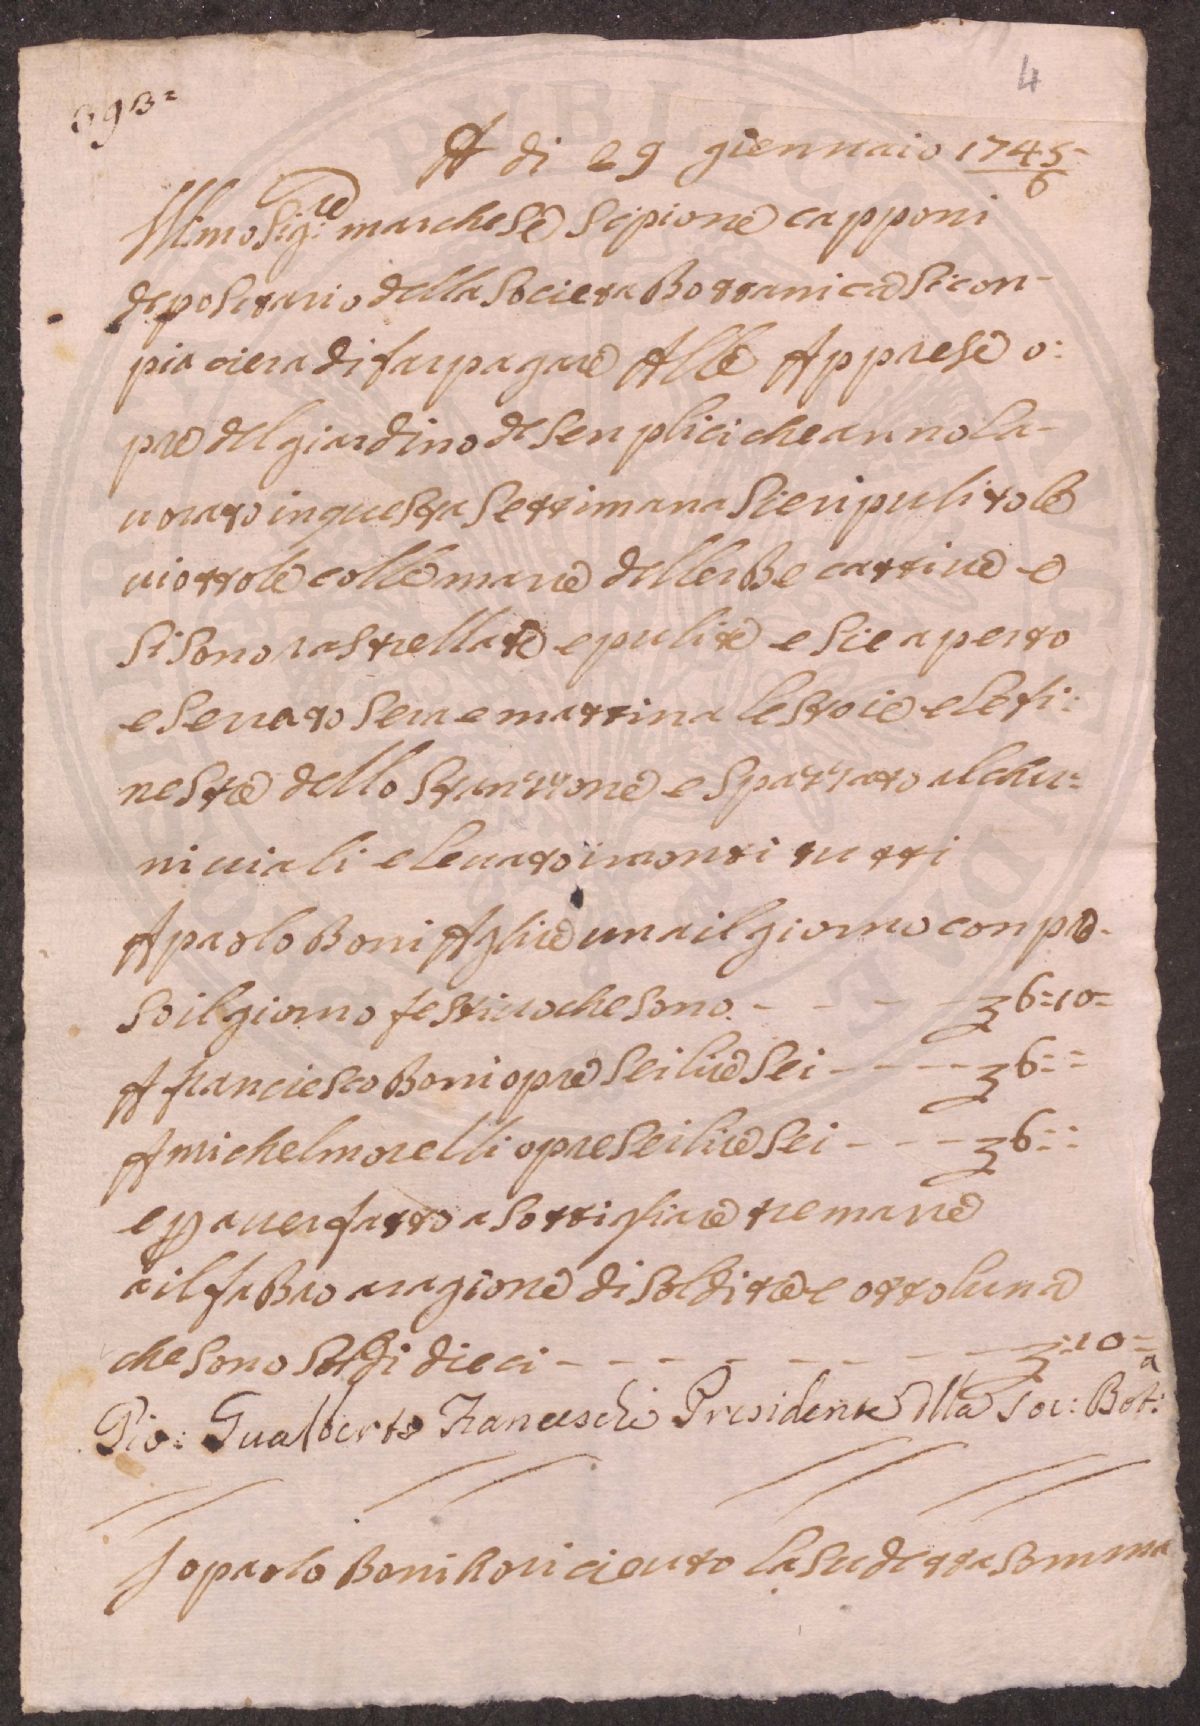 4
393=
A di 29 giennaio 1745/6
Ill:mo Sig:re marchese Scipione capponi
depositario della Societa Bottanica Si con-
piaciera di far pagare Alle Apprese o:
pre del giardino de Senplici che anno la-
uorato in questa Settimana Sie ripulito le
uiottole colle mare dellerBe cattiue e
Si Sono rastrellate e pulite e Sie aperto
e Serrato Sera e mattina le Stoie e le fi:
nestre dello Stanzione e Spazzato alchu=
ni uiali e leuato i monti tutti
A paolo Boni A glire una il giorno conpre-
So il giorno festiuo che sono - - - - ʒ 6=10=
A franciesco Boni opre Sei lire Sei - - - - ʒ 6=:=
A michel morelli opre Sei lire Sei - - - ʒ 6=:=
e p auer fatto a Sottigliare tre mare
a il faBro a ragione di Soldi tre e otto luna
che Sono Soldi dieci - - - - - - - - ʒ=:10=
Gio: Gualberto Franceschi Presidente dlla Soc: Bot:a
Io paolo Boni ho riceuto la Sudetta Somma